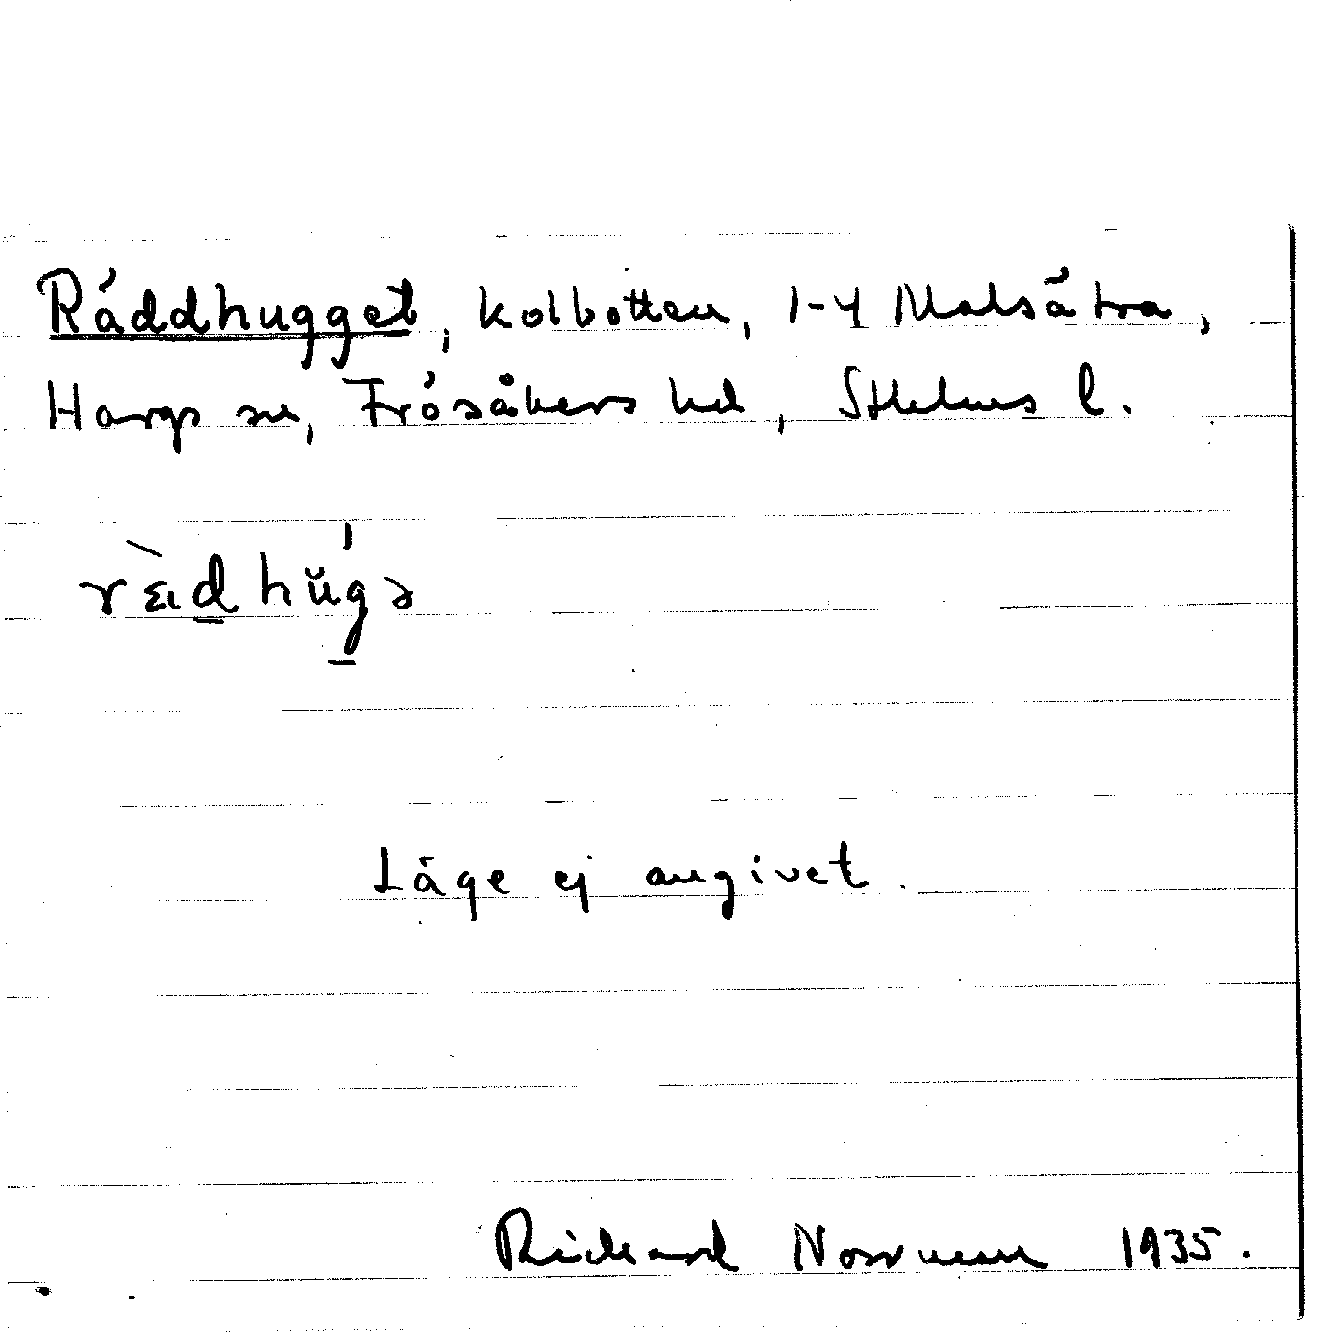 Räddhugget, kolbotten, 1-4 Malsätra,
Hargs sn, Frösåkers hd, Sthlms l.
rɛ̀d hŭgə
Läge ej angivet.
Rickard Norrman 1935.